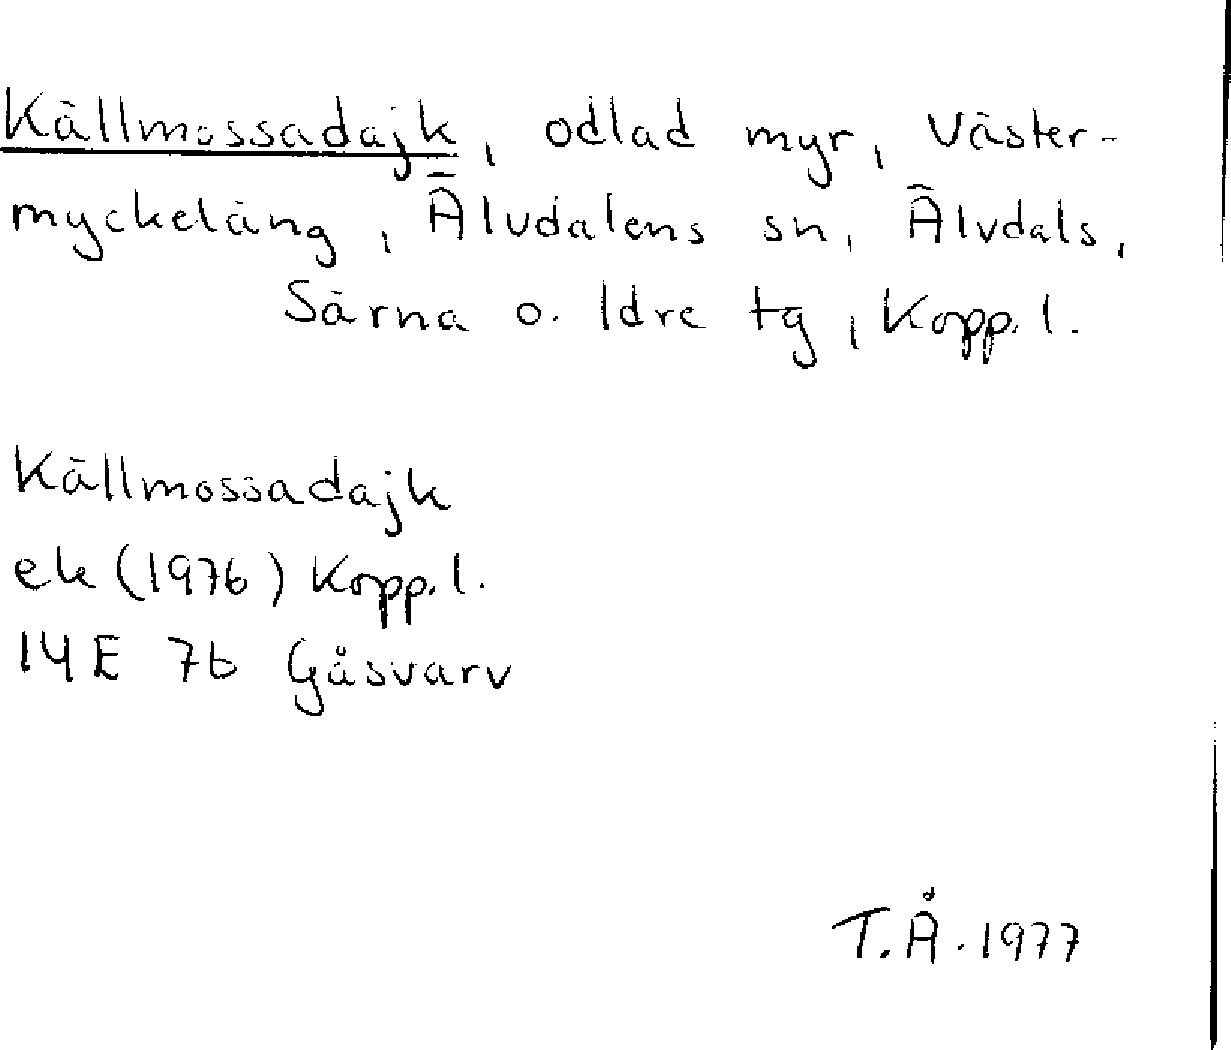 Källmossadajk, odlad myr, Väster-
myckeläng, Älvdalens sn, Älvdals,
Särna o. Idre tg, Kopp. l.
Källmossadajk
ek (1976) Kopp. l.
14E 7b Gåsvarv
T.Å. 1977